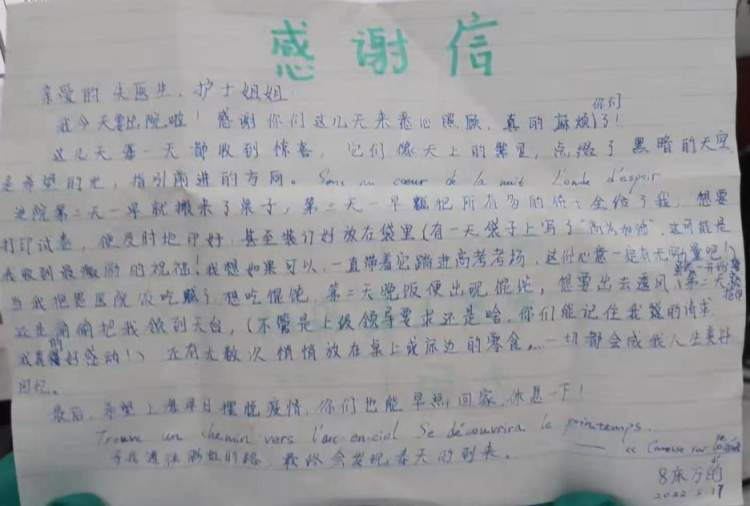 感谢信
亲爱的 医生、护士姐姐
我今天要出院啦！感谢你们这几天来悉心照顾，真的麻烦你们了！
这几天每一天都收到惊喜，它们像天上的繁星，点缀了黑暗的天空
是希望的光，指引前进的方向。Sens au cœur de la nuit L'onde d'espoir
进院第二天一早就搬来了桌子，第三天一早 把所有 给了我，想要
打印试卷，便及时地印好，甚至装订好放在袋里(有一天袋子上写了"高考加油"，这可能是
我收到最 的祝福！我想如果可以，一直带着它踏进高考考场，这份心意一定有无穷力量吧！
当我抱怨医院饭吃腻了想吃馄饨，第二天晚饭便出现馄饨，想要出去透风，第二天
医生偷偷把我领到天台，(不管是上级领导要求还是啥，你们能记住我 的请求
我真的好感动！) 还有无数次悄悄放在桌上或床边的零食……一切都会成我人生美好
回忆。
最后，希望上海早日摆脱疫情，你们也能早点回家，休息一下！
Trouve un chemin vers l'arc-en-ciel Se découvrira le printemps.
寻找通往彩虹的路，我终会发现春天的到来。 —— «
8床
2022.5.17